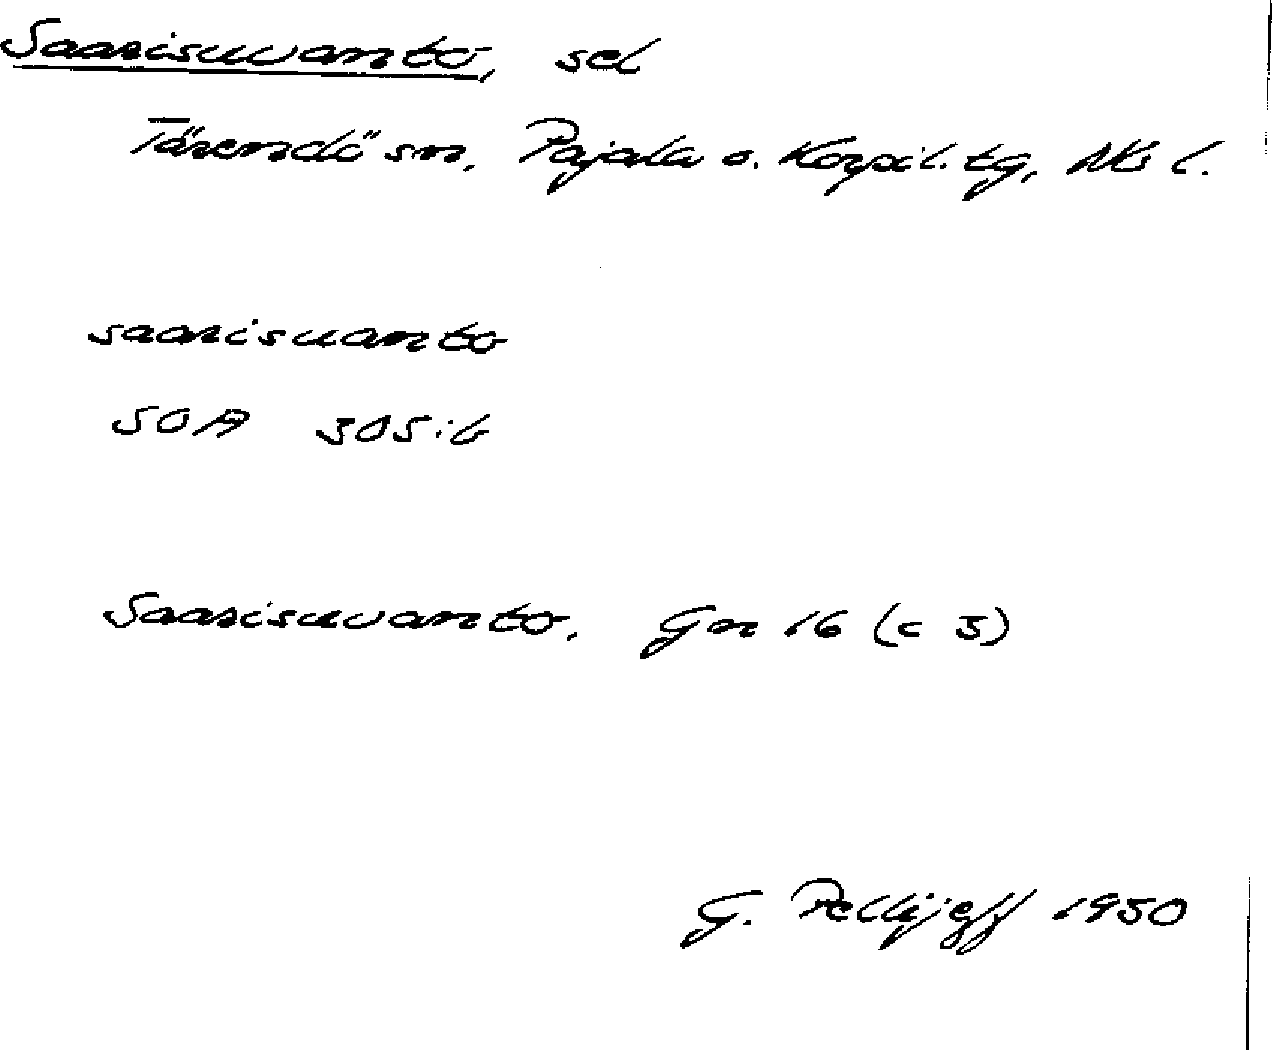 Saarisuvanto, sel
Tärendö sn, Pajala o. Korpil. tg, Nb l.
saarisuanto
SOA 305:6
Saarisuvanto, Gn 16 (c 3)
G. Pellijeff 1950